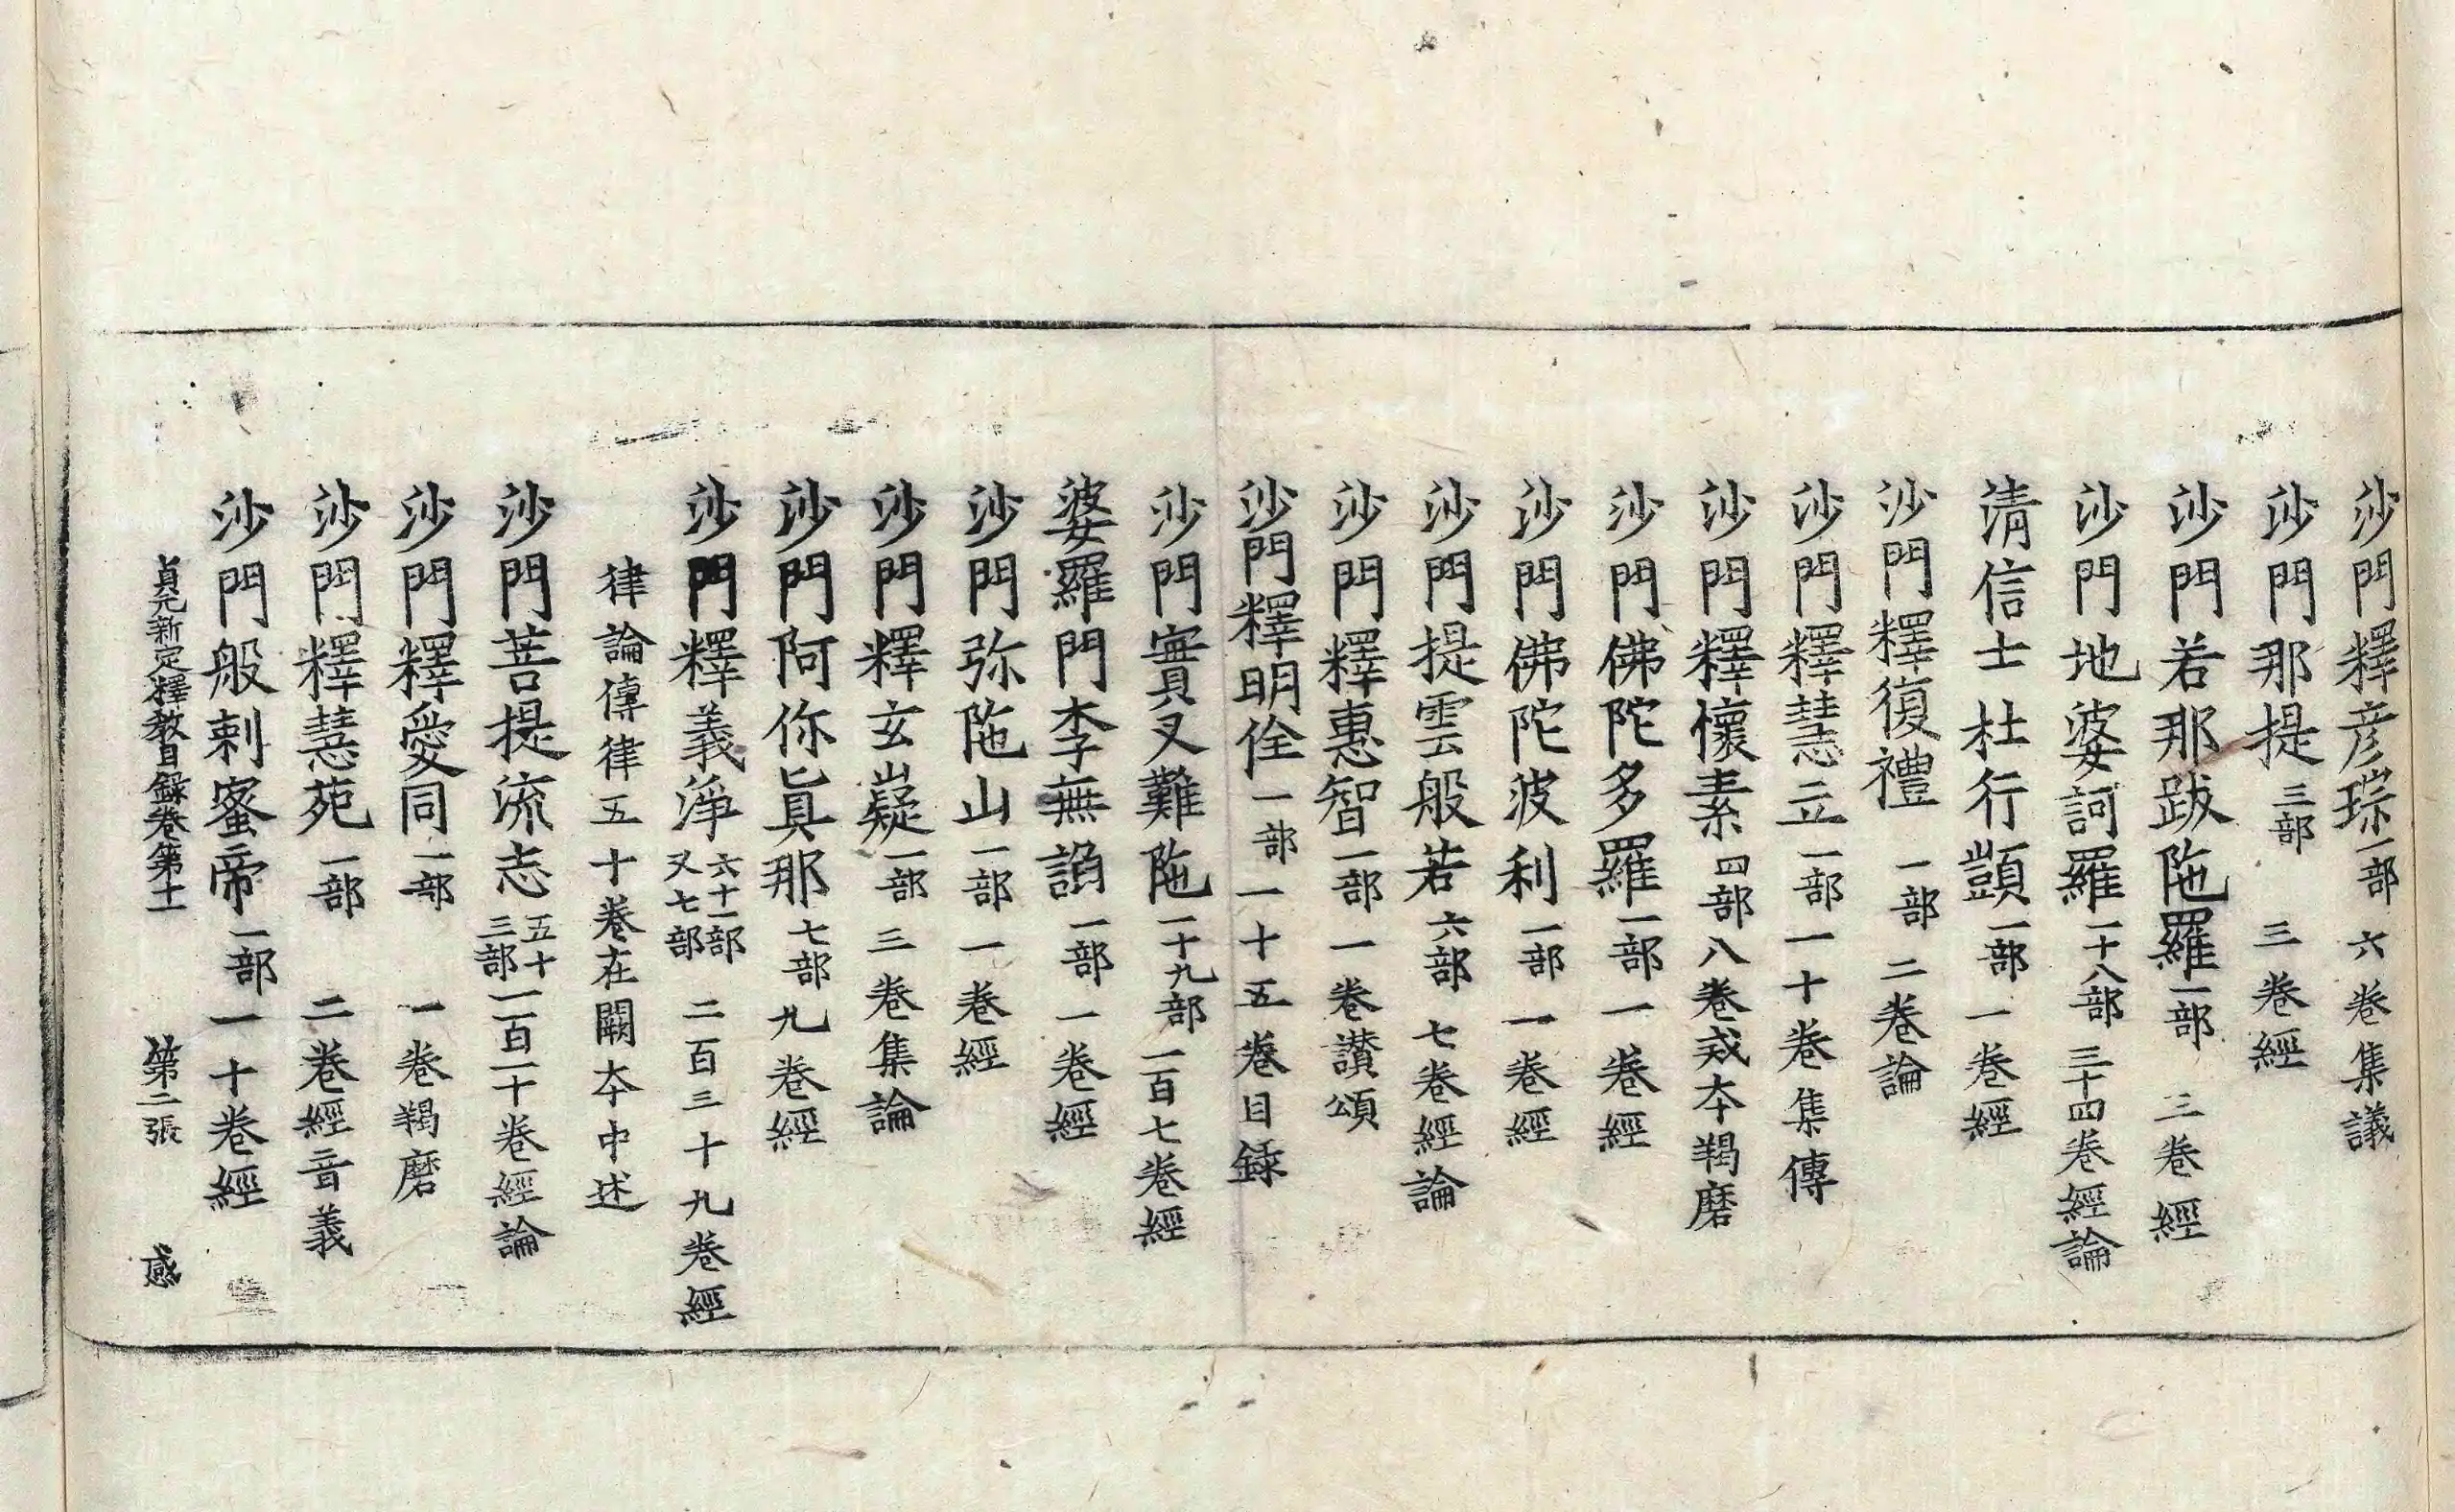 沙門釋彦琮一部六卷集議
沙門那提三部三卷經
沙門若那跋陁羅一部二卷經
沙門地婆訶羅一十八部三十四卷經論
清信士杜行顗一部一卷經
沙門釋復禮一部二卷論
沙門釋慧立一部一十卷集傳
沙門釋懷素四部八卷戒夲羯磨
沙門佛陀多羅一部一卷經
沙門佛陀波利一部一卷經
沙門提雲般若六部七卷經論
沙門釋惠智一部一卷讃頌
沙門釋明佺一部一十五卷目錄
沙門實叉難陁一十九部一百七卷經
婆羅門李無諂一部一卷經
沙門弥陁山一部一卷經
沙門釋玄嶷一部三卷集論
沙門阿你眞那七部九卷經
沙門釋義淨六十一部又七部二百三十九卷經
律論傳律五十卷在闕夲中述
沙門菩提流志五十三部一百一十卷經論
沙門釋愛同一部一卷羯磨
沙門釋慧苑一部二卷經音義
沙門般剌蜜帝一部一十卷經
貞元新定釋教目錄卷第十一 第二張 感